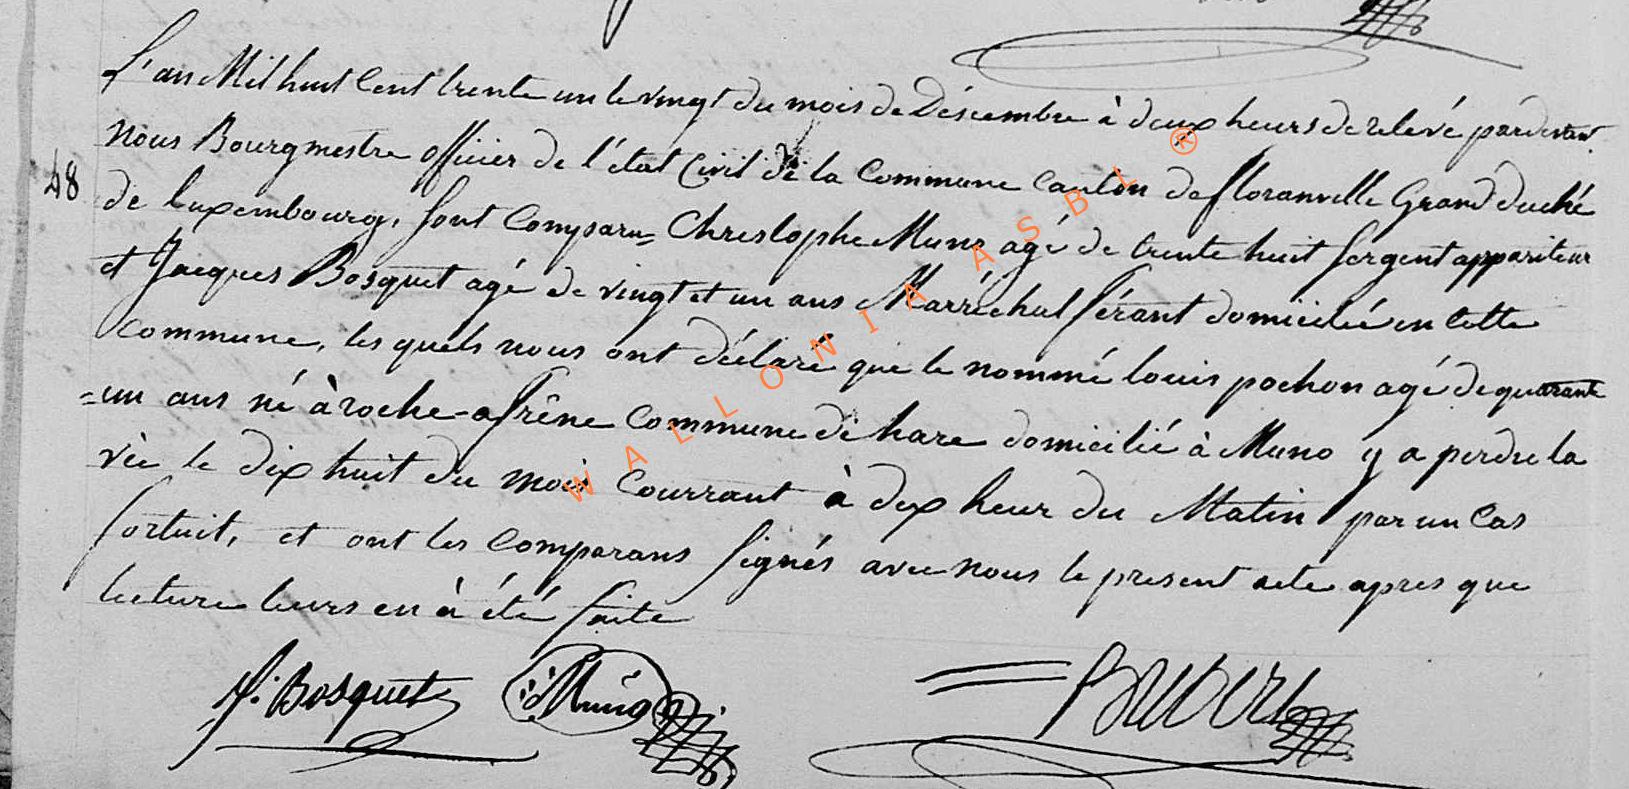 L'an Mil huit Cent trente un le vingt du mois de Décembre à deux heurs de relevé pardevant
Nous Bourgmestre officier de l'état Civil de la Commune Canton de floranville Grand duché
48
de Luxembourg, sont Comparu= Christophe Muno agé de trente huit sergent appariteur
et Jacques Bosquet agé de vingt et un ans Marréchal férant domicilié en Cette
Commune, les quels nous ont déclaré que le nommé louis pochon agé de quarante
=un ans né à roche-a frêne Commune de hare domicilié à Muno y a perdu la
vie le dix huit du mois Courrant à dix heur du Matin par un Cas
fortuit, et ont les Comparans signés avec nous le present acte apres que
lecture leurs en à été faite
J. Bosquet Muno
WALLONIA ASBL ®